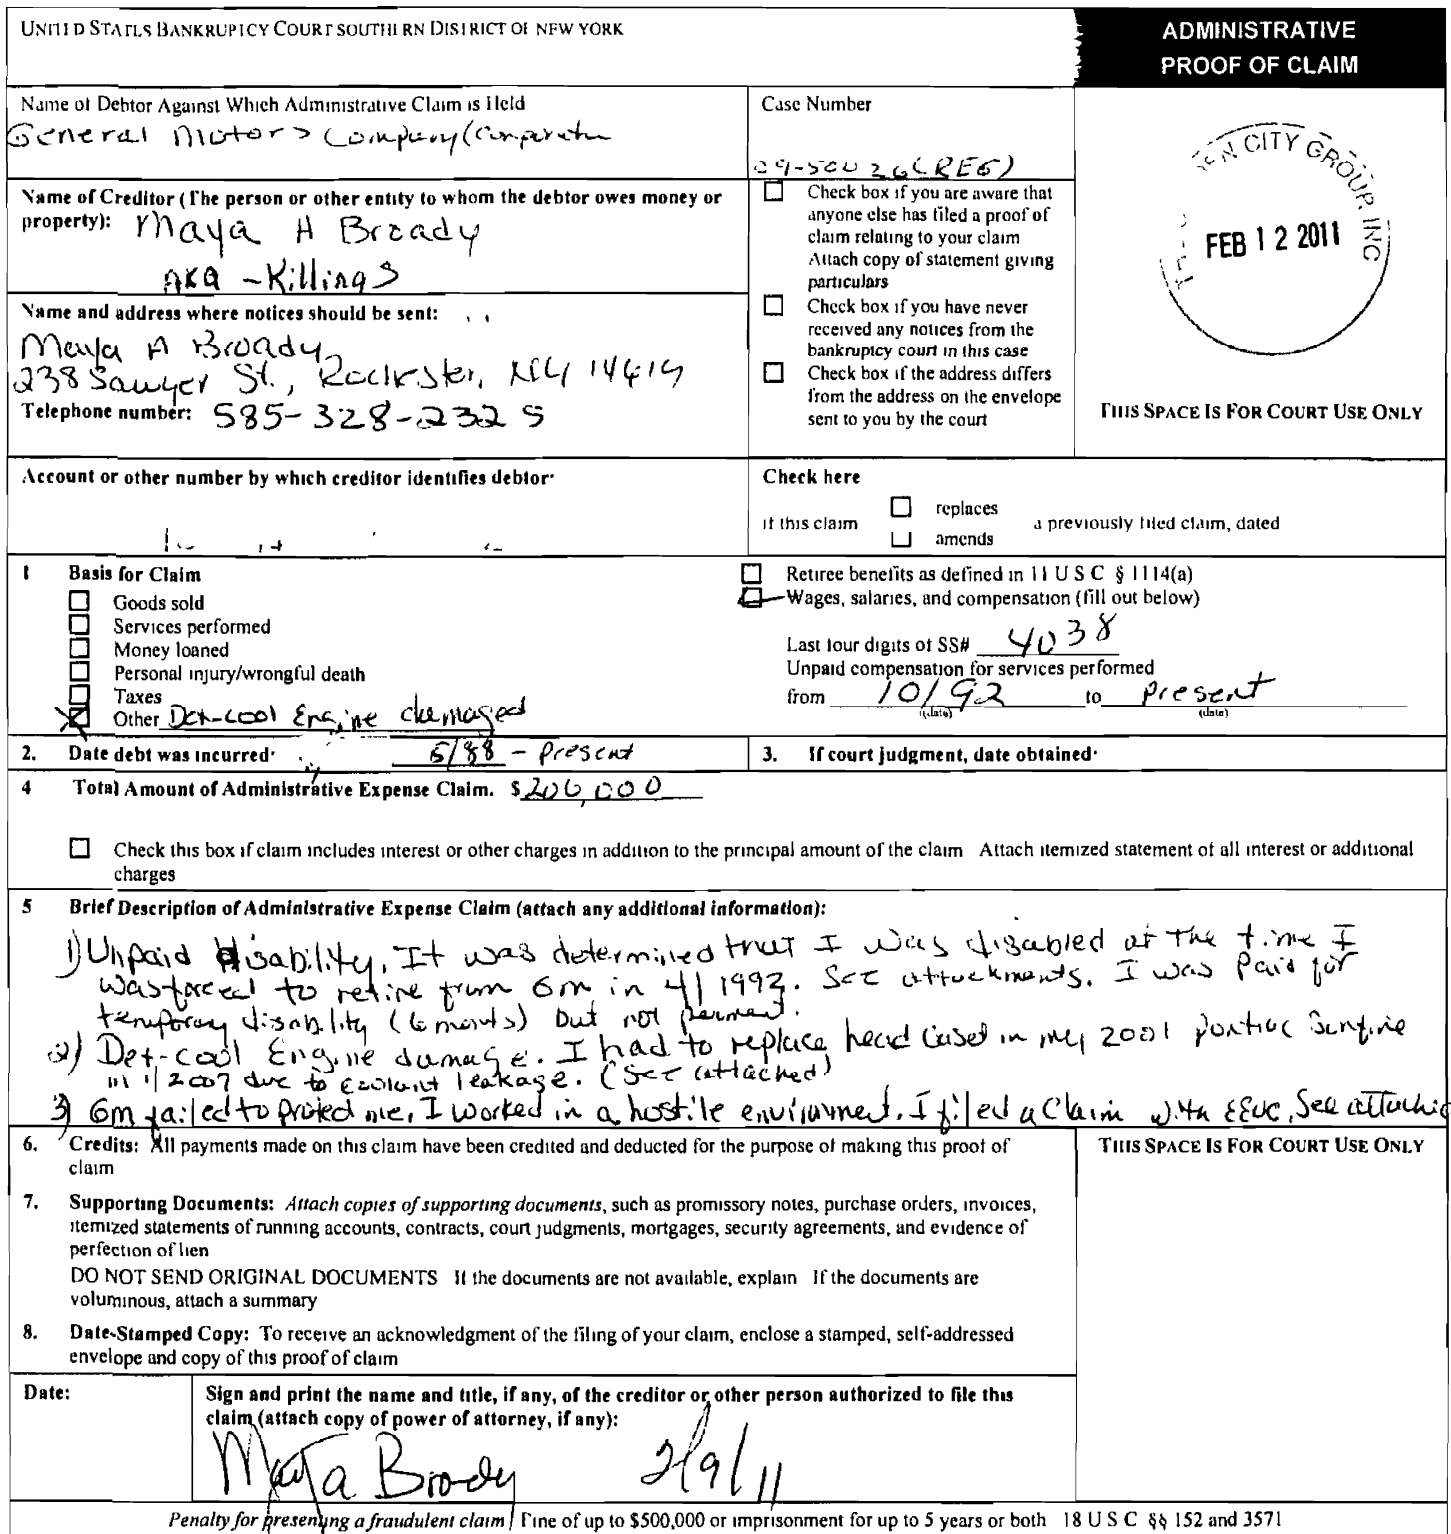 UNITED STATES BANKRUPTCY COURT SOUTHERN DISTRICT OF NEW YORK
ADMINISTRATIVE
PROOF OF CLAIM
Name of Debtor Against Which Administrative Claim is Held
General Motors Company (
Case Number
(REG)
CITY GROUP, INC
FEB 12 2011
THIS SPACE IS FOR COURT USE ONLY
Name of Creditor (The person or other entity to whom the debtor owes money or
property): Maya A Broady
AKA - Killings
Name and address where notices should be sent:
Maya A Broady
238 Sawyer St., Rochester, NY 14619
Telephone number: 585-328-2325
Check box if you are aware that
anyone else has filed a proof of
claim relating to your claim
Attach copy of statement giving
particulars
Check box if you have never
received any notices from the
bankruptcy court in this case
Check box if the address differs
from the address on the envelope
sent to you by the court
Account or other number by which creditor identifies debtor:
Check here
if this claim
replaces
amends
a previously filed claim, dated
1 Basis for Claim
Goods sold
Services performed
Money loaned
Personal injury/wrongful death
Taxes
Other Dex-cool Engine damaged
Retiree benefits as defined in 11 U S C § 1114(a)
Wages, salaries, and compensation (fill out below)
Last four digits of SS# 4038
Unpaid compensation for services performed
from 10/92 to Present
(date) (date)
2. Date debt was incurred: 5/88 - Present
3. If court judgment, date obtained:
4 Total Amount of Administrative Expense Claim. $
Check this box if claim includes interest or other charges in addition to the principal amount of the claim Attach itemized statement of all interest or additional
charges
5 Brief Description of Administrative Expense Claim (attach any additional information):
1) Unpaid disability. It was determined that I was disabled at the time I
was forced to retire from Gm in 4/1992. See attachments. I was paid for
temporary disability (6 months) but not
2) Dex-cool Engine damage. I had to replace head in my 2001 Pontiac Sunfire
in 1/2007 due to coolant leakage. (See attached)
3) Gm failed to protect me. I worked in a hostile environment. I filed a Claim with EEOC. See
6. Credits: All payments made on this claim have been credited and deducted for the purpose of making this proof of
claim
7. Supporting Documents: Attach copies of supporting documents, such as promissory notes, purchase orders, invoices,
itemized statements of running accounts, contracts, court judgments, mortgages, security agreements, and evidence of
perfection of lien
DO NOT SEND ORIGINAL DOCUMENTS If the documents are not available, explain If the documents are
voluminous, attach a summary
8. Date-Stamped Copy: To receive an acknowledgment of the filing of your claim, enclose a stamped, self-addressed
envelope and copy of this proof of claim
THIS SPACE IS FOR COURT USE ONLY
Date:
Sign and print the name and title, if any, of the creditor or other person authorized to file this
claim (attach copy of power of attorney, if any):
Maya Broady 2/9/11
Penalty for presenting a fraudulent claim Fine of up to $500,000 or imprisonment for up to 5 years or both 18 U S C §§ 152 and 3571